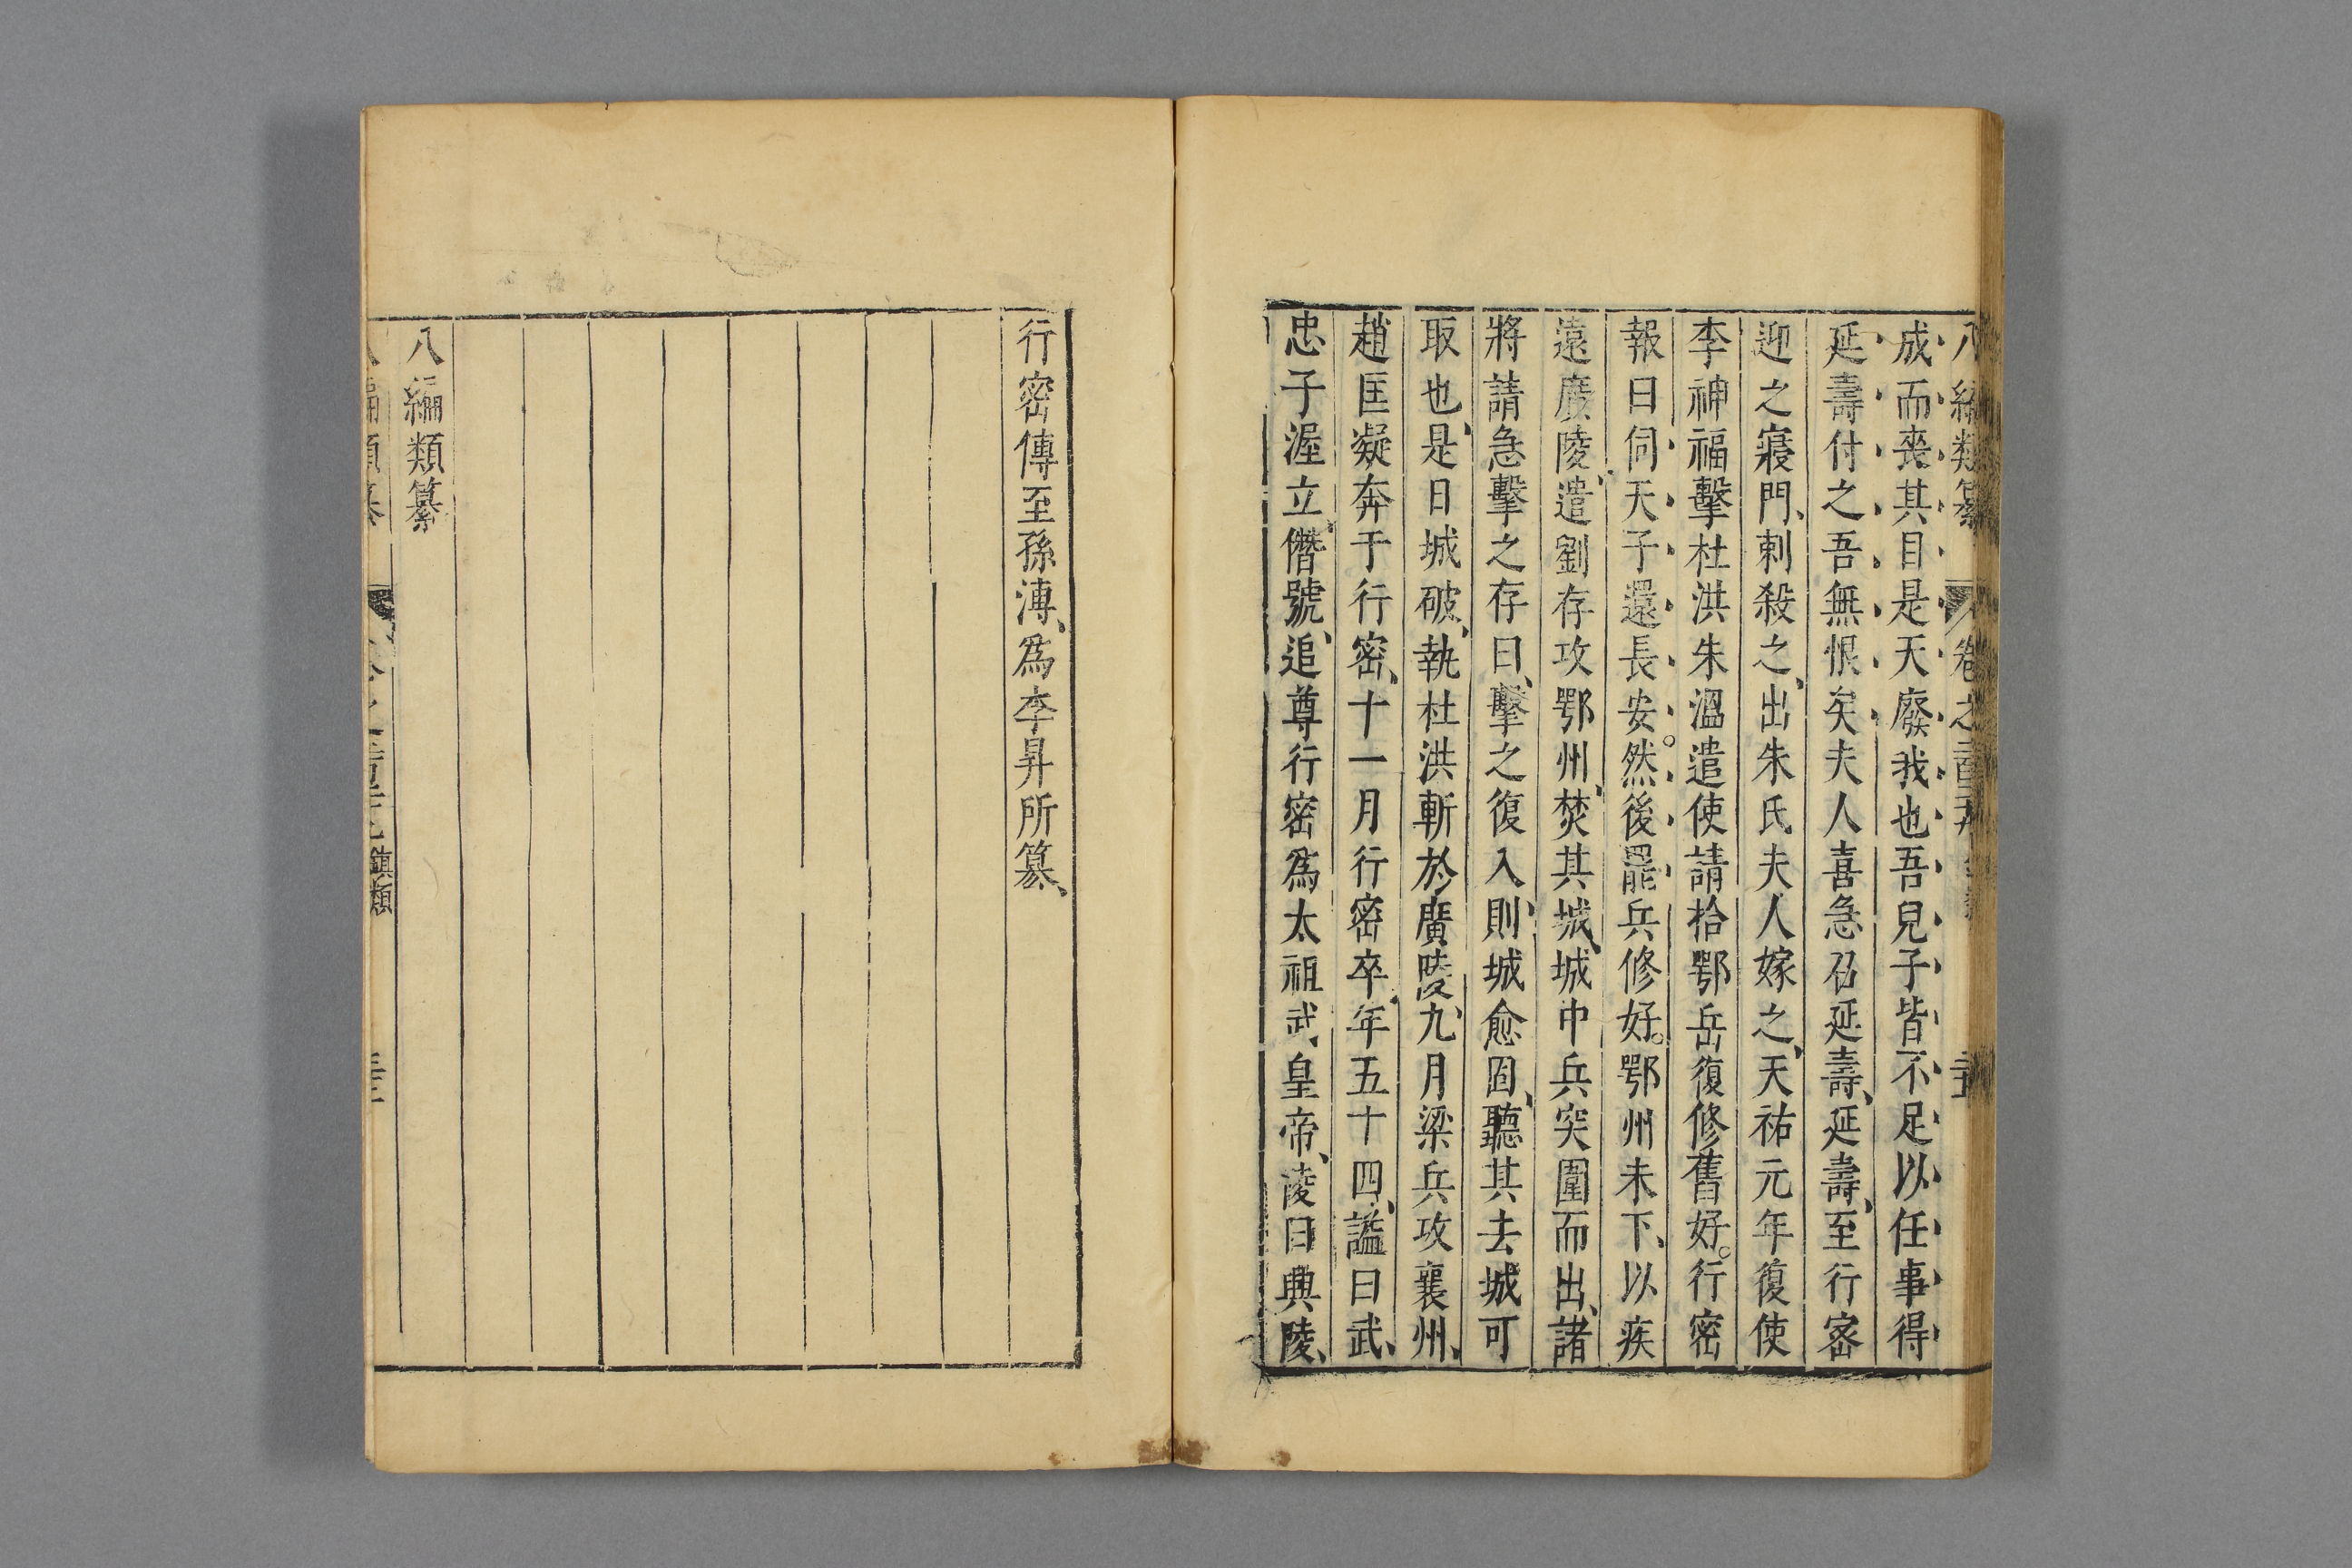 成而喪其目是天廢我也吾兒子皆不足以任事得
延壽付之吾無恨矣夫人喜急召延壽、延壽、至行密
迎之寢門、刺殺之、出朱氏夫人嫁之、天祐元年復使
李神福擊杜洪朱溫遣使請捨鄂岳復修舊好。行密
報曰伺天子還長安。然後罷兵修好。鄂州未下、以疾
還廣陵、遣劉存攻鄂州、焚其城、城中兵突圍而出、諸
將請急擊之存曰、擊之復入、則城愈固、聽其去城可
取也、是日城破、執杜洪斬於廣陵、九月梁兵攻襄州、
趙匡凝奔于行密、十一月行密卒、年五十四、諡曰武、
忠子渥立、僭號、追尊行密為太祖武皇帝、陵曰興陵、
行密傳至孫溥、為李昇所篡、
八編類纂